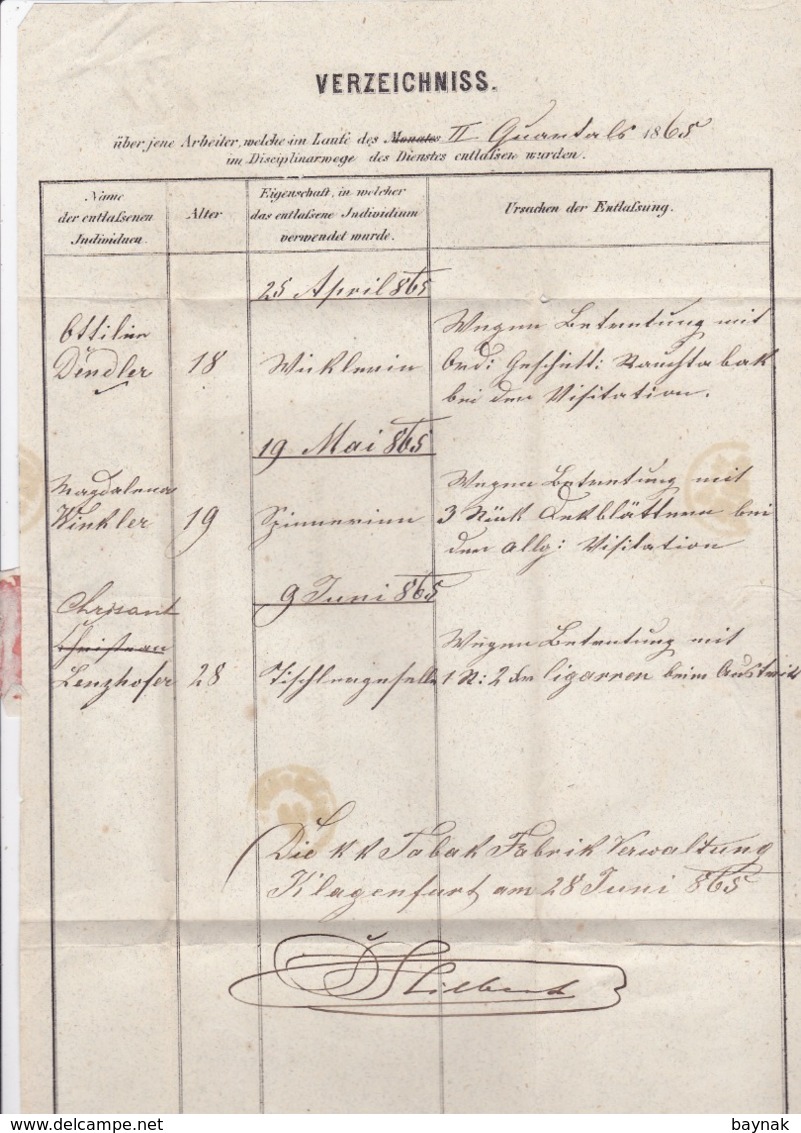 VERZEICHNISS.
über jene Arbeiter, welche im Laufe des Monates II Quartals 1865
im Disciplinarwege des Dienstes entlaßene wurden.
Name
der entlaßenen
Individuen.
Alter
Eigenschaft, in welcher
das entlaßene Individium
verwendet wurde.
Ursachen der Entlaßung.
25 April 865
Ottilie
Dendler
18
Wicklerin
Wegen Betretung mit
Ord: Geschnitt: Rauchtabak
bei der Visitation.
19 Mai 865
Magdalena
Winkler
19
Spinnerinn
Wegen Betretung mit
3 Stück Dekblättern bei
der allg: Visitation
9 Juni 865
Chrisant
Christian
Lenzhofer
28
Tischlergeselle
Wegen Betretung mit
1 St: 2 Cigarren beim Austritt
Die k k Tabak Fabrik Verwaltung
Klagenfurt am 28 Juni 865
baynak
www.delcampe.net